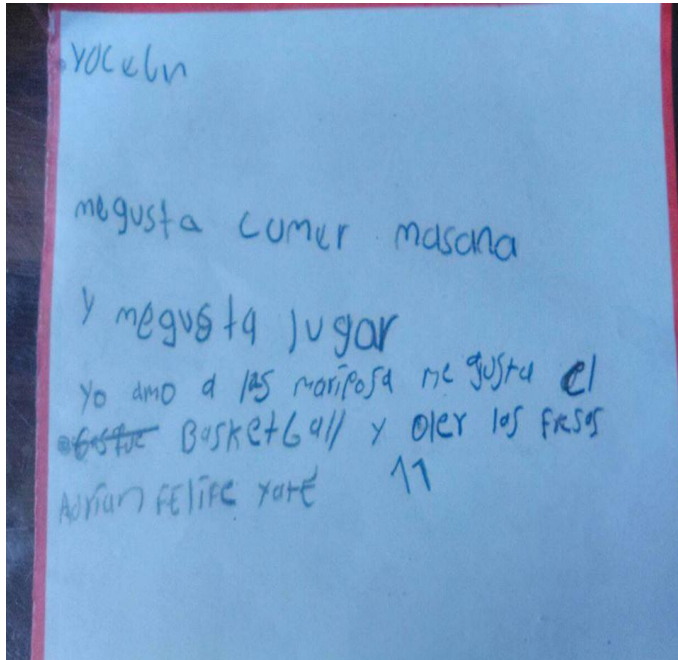 Yocelin
me gusta comer masana
y me gusta jugar
yo amo a las mariposa me gusta el
Basketball y oler las fresas
Adrian Felipe Yate 11